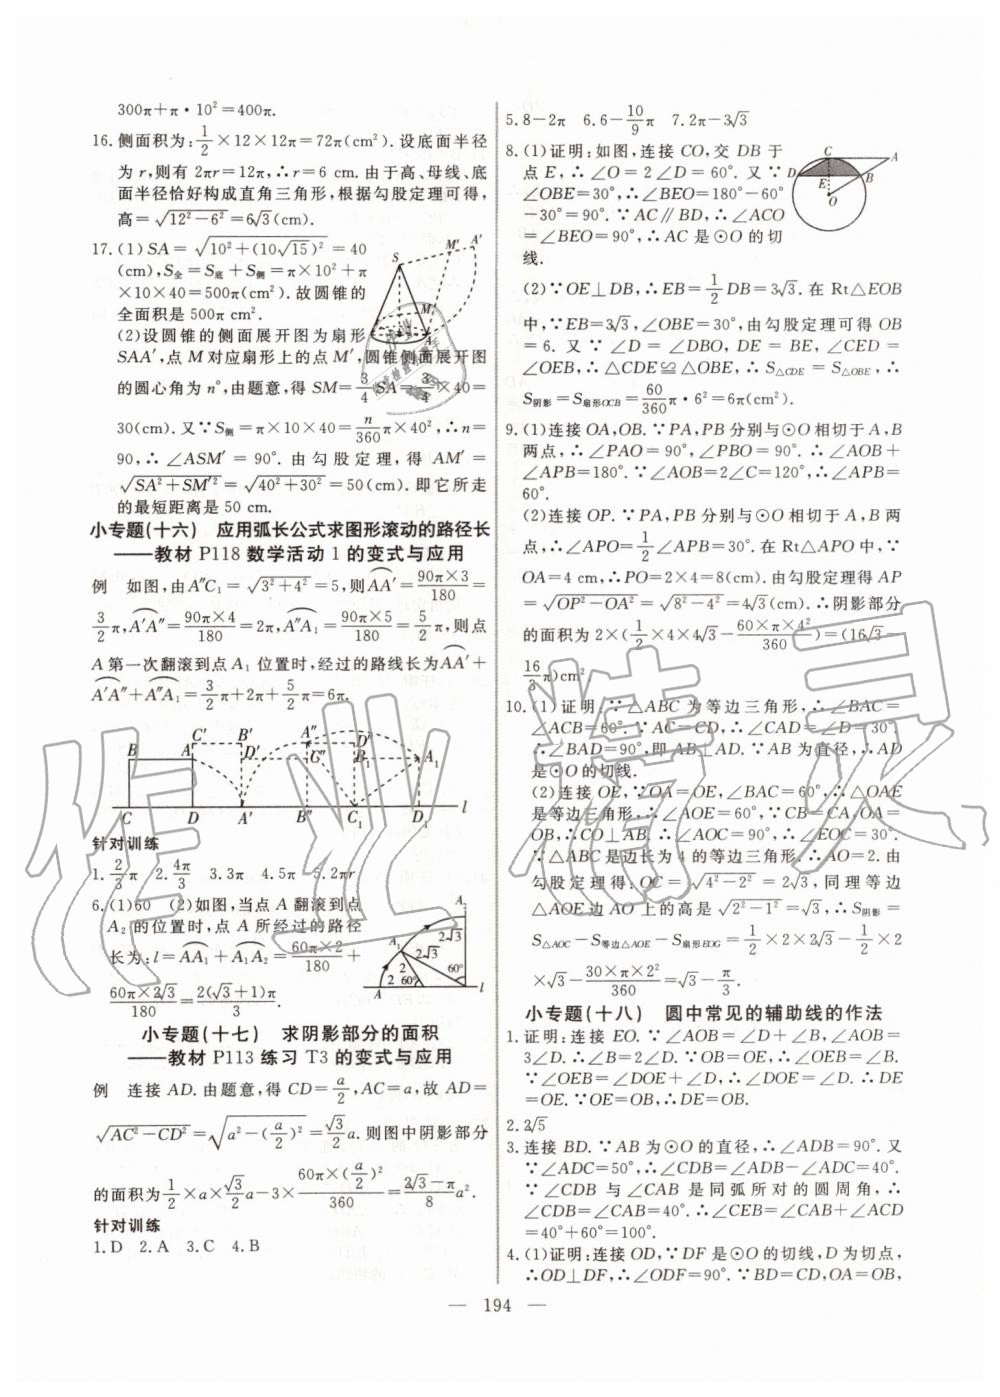 300π+π·10²=400π.
16.侧面积为:1/2×12×12π=72π(cm²).设底面半径
为r,则有2πr=12π,∴r=6 cm.由于高、母线、底
面半径恰好构成直角三角形,根据勾股定理可得,
高=√(12²-6²)=6√3(cm).
17.(1)SA=√(10²+(10√15)²)=40
(cm),S全=S底+S侧=π×10²+π
×10×40=500π(cm²).故圆锥的
全面积是500π cm².
(2)设圆锥的侧面展开图为扇形
SAA′,点M对应扇形上的点M′,圆锥侧面展开图
的圆心角为n°,由题意,得SM=3/4SA=3/4×40=
30(cm).又∵S侧=π×10×40=n/360π×40²,∴n=
90,∴∠ASM′=90°.由勾股定理,得AM′=
√(SA²+SM′²)=√(40²+30²)=50(cm).即它所走
的最短距离是50 cm.
小专题(十六) 应用弧长公式求图形滚动的路径长
——教材P118数学活动1的变式与应用
例 如图,由A″C₁=√(3²+4²)=5,则⌒AA′=90π×3/180=
3/2π,⌒A′A″=90π×4/180=2π,⌒A″A₁=90π×5/180=5/2π,则点
A第一次翻滚到点A₁位置时,经过的路线长为⌒AA′+
⌒A′A″+⌒A″A₁=3/2π+2π+5/2π=6π.
针对训练
1.2/3π 2.4π/3 3.3π 4.5π 5.2πr
6.(1)60 (2)如图,当点A翻滚到点
A₂的位置时,点A所经过的路径
长为:l=⌒AA₁+⌒A₁A₂=60π×2/180+
60π×2√3/180=2(√3+1)π/3.
小专题(十七) 求阴影部分的面积
——教材P113练习T3的变式与应用
例 连接AD.由题意,得CD=a/2,AC=a,故AD=
√(AC²-CD²)=√(a²-(a/2)²)=√3/2a.则图中阴影部分
的面积为1/2×a×√3/2a-3×60π×(a/2)²/360=(2√3-π)/8a².
针对训练
1.D 2.A 3.C 4.B
5.8-2π 6.6-10/9π 7.2π-3√3
8.(1)证明:如图,连接CO,交DB于
点E,∴∠O=2∠D=60°.又∵
∠OBE=30°,∴∠BEO=180°-60°
-30°=90°.∵AC∥BD,∴∠ACO
=∠BEO=90°,∴AC是⊙O的切
线.
(2)∵OE⊥DB,∴EB=1/2DB=3√3.在Rt△EOB
中,∵EB=3√3,∠OBE=30°,由勾股定理可得OB
=6.又∵∠D=∠DBO,DE=BE,∠CED=
∠OEB,∴△CDE≌△OBE,∴S△CDE=S△OBE,∴
S阴影=S扇形OCB=60/360π·6²=6π(cm²).
9.(1)连接OA,OB.∵PA,PB分别与⊙O相切于A,B
两点,∴∠PAO=90°,∠PBO=90°.∴∠AOB+
∠APB=180°.∵∠AOB=2∠C=120°,∴∠APB=
60°.
(2)连接OP.∵PA,PB分别与⊙O相切于A,B两
点,∴∠APO=1/2∠APB=30°.在Rt△APO中,∵
OA=4 cm,∴PO=2×4=8(cm).由勾股定理得AP
=√(OP²-OA²)=√(8²-4²)=4√3(cm).∴阴影部分
的面积为2×(1/2×4×4√3-60×π×4²/360)=(16√3-
16/3π)cm².
10.(1)证明:∵△ABC为等边三角形,∴∠BAC=
∠ACB=60°.∵AC=CD,∴∠CAD=∠D=30°.
∴∠BAD=90°,即AB⊥AD.∵AB为直径,∴AD
是⊙O的切线.
(2)连接OE,∵OA=OE,∠BAC=60°,∴△OAE
是等边三角形,∴∠AOE=60°,∵CB=CA,OA=
OB,∴CO⊥AB.∴∠AOC=90°,∴∠EOC=30°.
∵△ABC是边长为4的等边三角形,∴AO=2.由
勾股定理得:OC=√(4²-2²)=2√3,同理等边
△AOE边AO上的高是√(2²-1²)=√3,∴S阴影=
S△AOC-S等边△AOE-S扇形EOG=1/2×2×2√3-1/2×2
×√3-30×π×2²/360=√3-π/3.
小专题(十八) 圆中常见的辅助线的作法
1.证明:连接EO.∵∠AOB=∠D+∠B,∠AOB=
3∠D.∴∠B=2∠D.∵OE=OB,∴∠OEB=∠B.
∵∠OEB=∠DOE+∠D,∴∠DOE=∠D.∴DE
=OE.∵OE=OB,∴DE=OB.
2.2√5
3.连接BD.∵AB为⊙O的直径,∴∠ADB=90°.又
∵∠ADC=50°,∴∠CDB=∠ADB-∠ADC=40°.
∵∠CDB与∠CAB是同弧所对的圆周角,∴
∠CDB=∠CAB=40°.∴∠CEB=∠CAB+∠ACD
=40°+60°=100°.
4.(1)证明:连接OD,∵DF是⊙O的切线,D为切点,
∴OD⊥DF,∴∠ODF=90°.∵BD=CD,OA=OB,
— 194 —